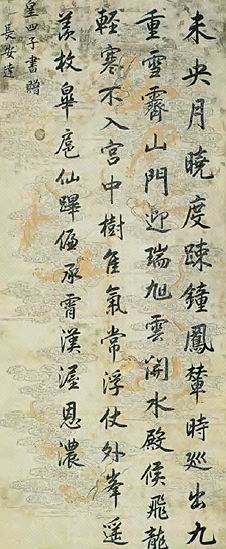 未央月曉度踈鐘鳳輦時巡出九
重雪霽山門迎瑞旭雲開水殿候飛龍
輕寒不入宮中樹佳氣常浮仗外峯遥
羨枚皐扈仙蹕偏承霄漢渥恩濃
四子書贈
長安